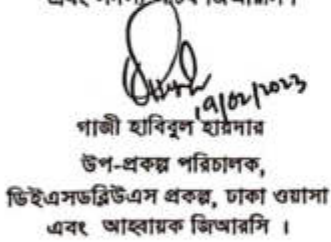 এবং সদস্য সচিব জিআরসি।
19/02/2023
গাজী হাবিবুল হায়দার
উপ-প্রকল্প পরিচালক,
ডিইএসডব্লিউএস প্রকল্প, ঢাকা ওয়াসা
এবং আহবায়ক জিআরসি ।